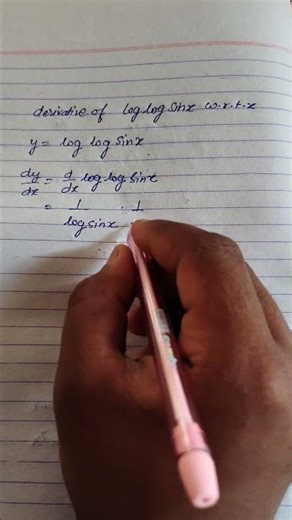 derivative of log log sinx w.r.t.x
y = log log sinx
dy/dx = d/dx log log sinx
= 1/log sinx . 1